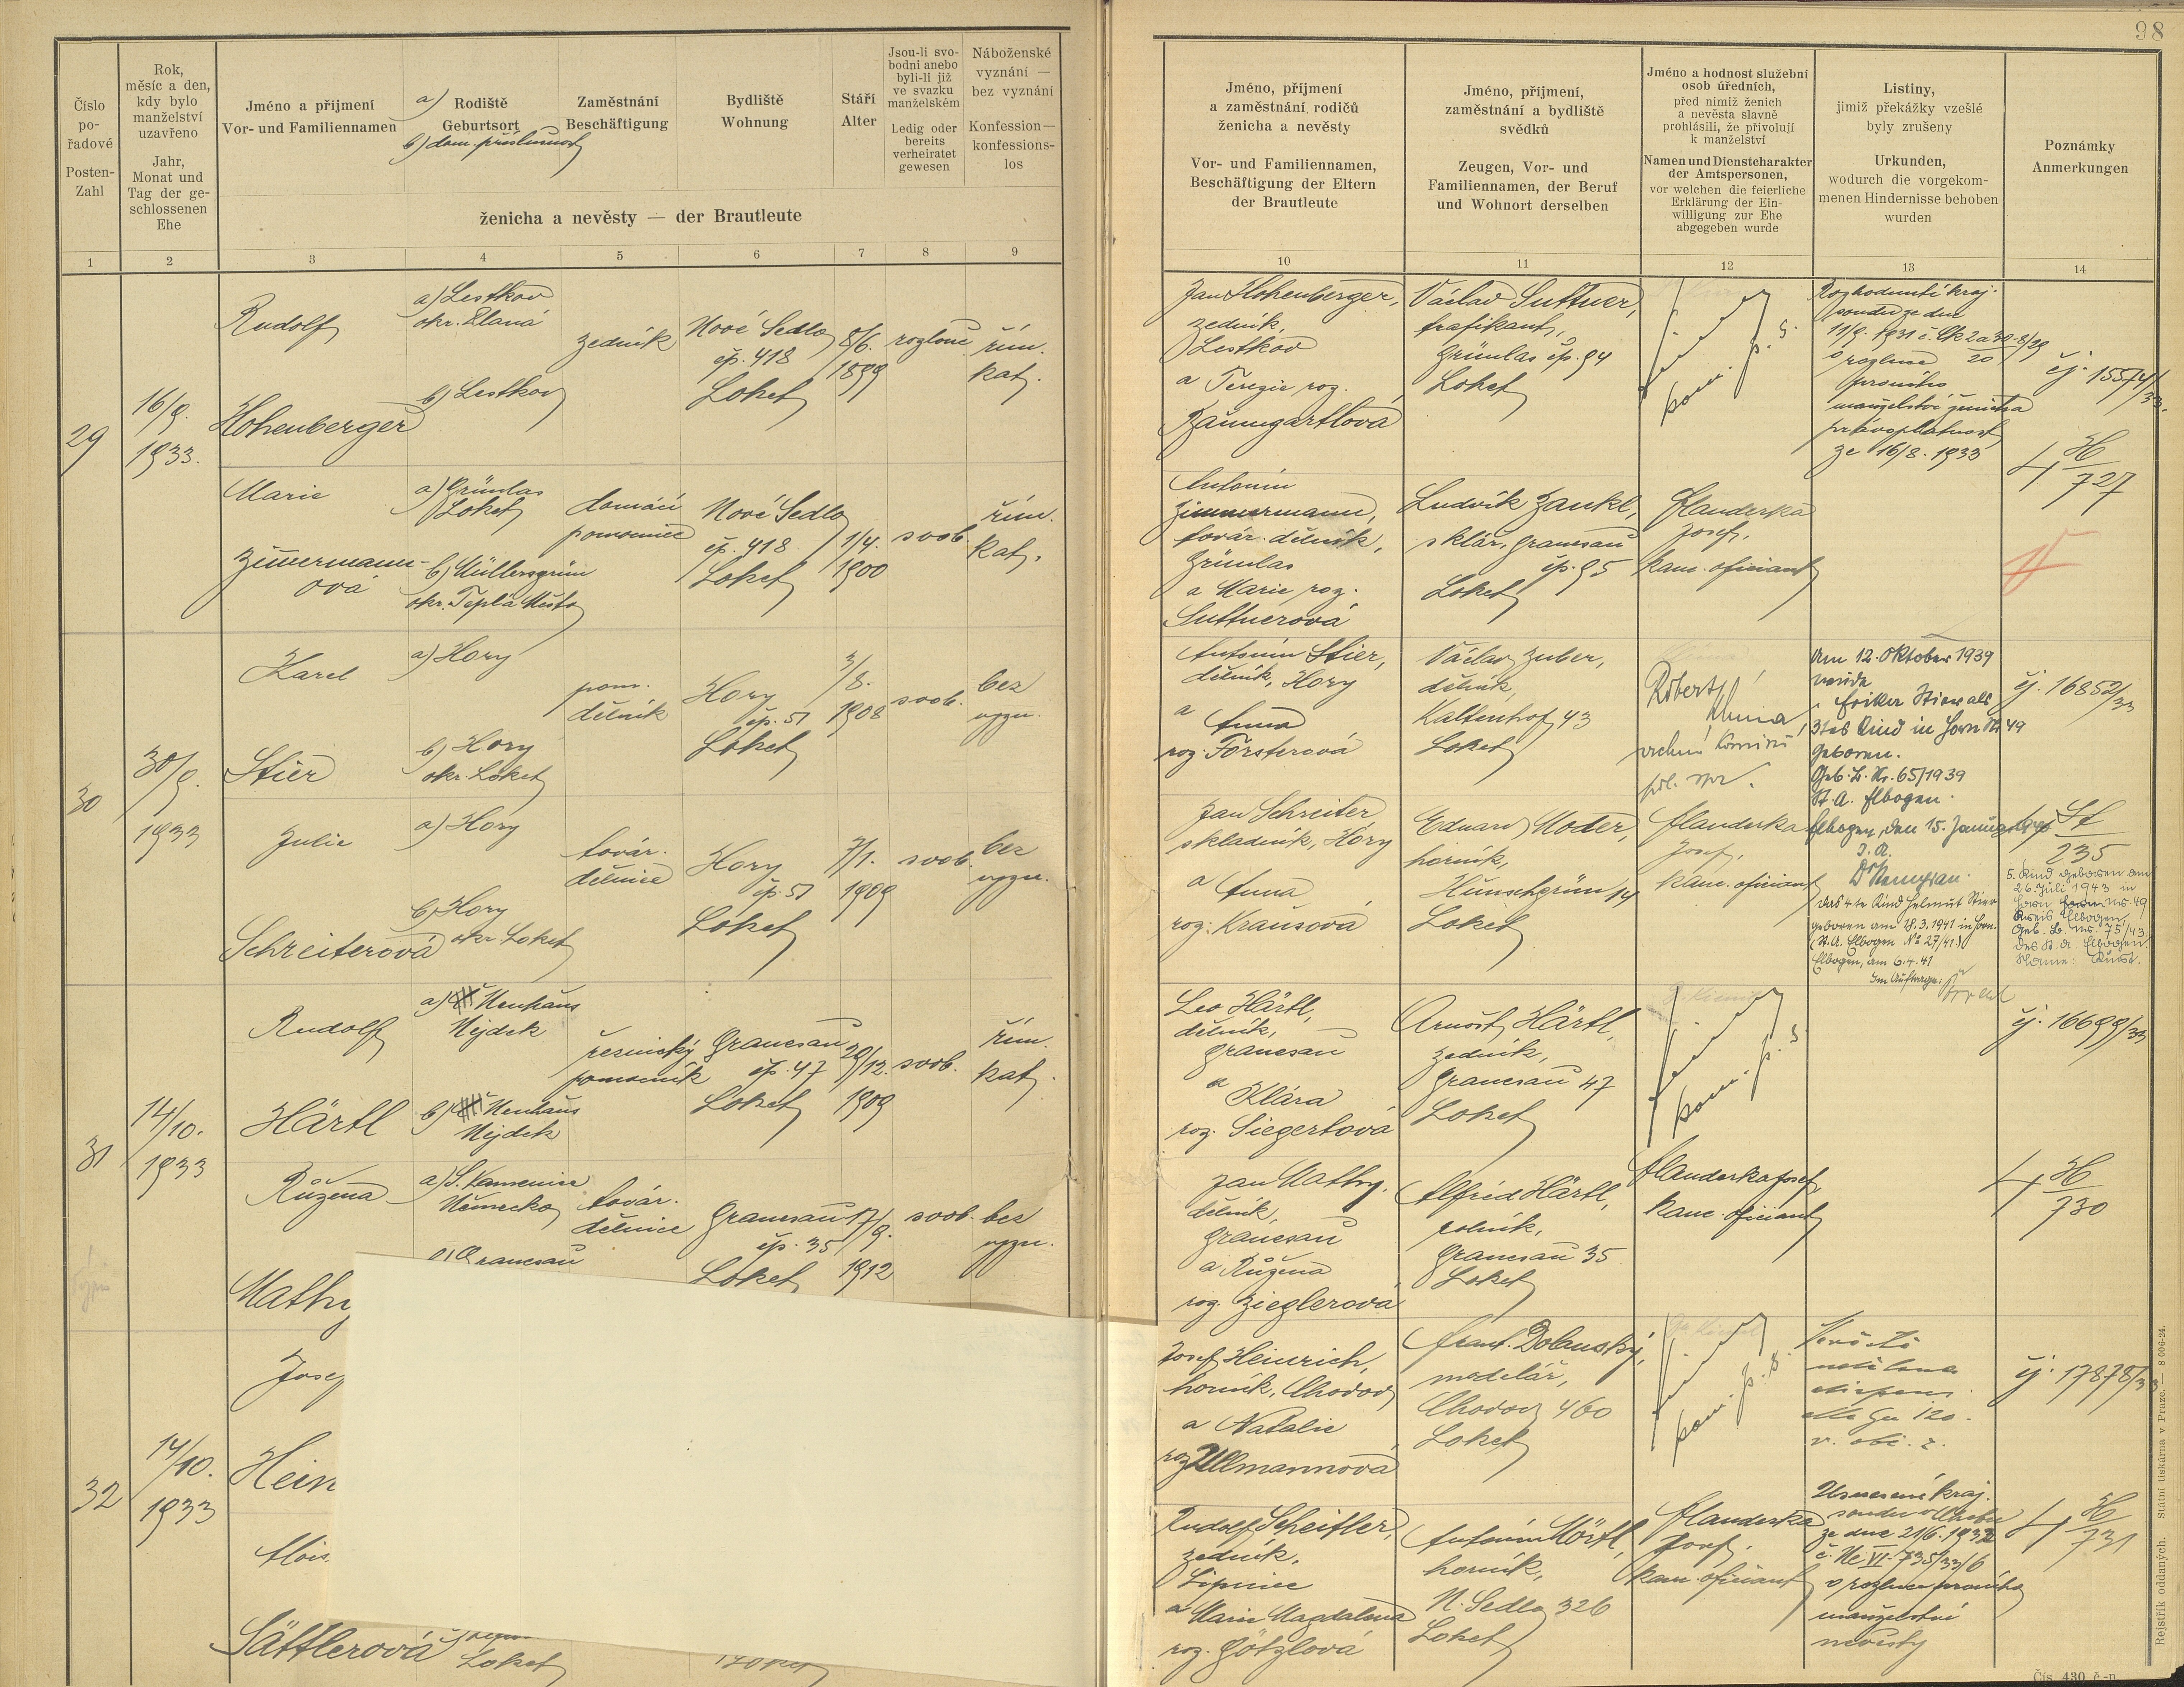 98
Číslo
po-
řadové
Posten-
Zahl
Rok,
měsíc a den,
kdy bylo
manželství
uzavřeno
Jahr,
Monat und
Tag der ge-
schlossenen
Ehe
Jméno a příjmení
Vor- und Familiennamen
a)
Rodiště
Geburtsort
b) dom. příslušnost
Zaměstnání
Beschäftigung
Bydliště
Wohnung
Stáří
Alter
Jsou-li svo-
bodni anebo
byli-li již
ve svazku
manželském
Ledig oder
bereits
verheiratet
gewesen
Náboženské
vyznání —
bez vyznání
Konfession—
konfessions-
los
ženicha a nevěsty — der Brautleute
1 2 3 4 5 6 7 8 9
29
16/9.
1933.
Rudolf
Hohenberger
a) Lestkov
okr. Planá
b) Lestkov
zedník
Nové Sedlo
čp. 418
Loket
8/6.
1899
rozlouč.
řím.
kat.
Marie
Zimermann-
ová
a) Grünlas
Loket
b) Müllersgrün
okr. Teplá Město
domácí
pomocnice
Nové Sedlo
čp. 418
Loket
1/4.
1900
svob.
řím.
kat.
30
30/9.
1933
Karel
Stier
a) Hory
b) Hory
okr. Loket
pom.
dělník
Hory
čp. 51
Loket
3/8.
1908
svob.
bez
vyzn.
Julie
Schreiterová
a) Hory
b) Hory
okr. Loket
továr.
dělnice
Hory
čp. 51
Loket
7/1.
1909
svob.
bez
vyzn.
31
14/10.
1933
Rudolf
Härtl
a) Neuhaus
Nejdek
b) Neuhaus
Nejdek
řeznický
pomocník
Granesau
čp. 47
Loket
29/12.
1909
svob.
řím.
kat.
Růžena
Mathy
a) S. Kamenice
Německo
Granesau
továr.
dělnice
Granesau
čp. 35
Loket
17/9.
1912
svob.
bez
vyzn.
32
14/10.
1933
Josef
Hein
Alois
Sättlerová
Loket
Loket
Jméno, příjmení
a zaměstnání rodičů
ženicha a nevěsty
Vor- und Familiennamen,
Beschäftigung der Eltern
der Brautleute
Jméno, příjmení,
zaměstnání a bydliště
svědků
Zeugen, Vor- und
Familiennamen, der Beruf
und Wohnort derselben
Jméno a hodnost služební
osob úředních,
před nimiž ženich
a nevěsta slavně
prohlásili, že přivolují
k manželství
Namen und Dienstcharakter
der Amtspersonen,
vor welchen die feierliche
Erklärung der Ein-
willigung zur Ehe
abgegeben wurde
Listiny,
jimiž překážky vzešlé
byly zrušeny
Urkunden,
wodurch die vorgekom-
menen Hindernisse behoben
wurden
Poznámky
Anmerkungen
10 11 12 13 14
Jan Hohenberger,
zedník,
Lestkov
a Terezie roz.
Baumgartlová
Václav Suttner,
trafikant,
Grünlas čp. 94
Loket
Rozhodnutí kraj.
soudu ze dne
11/9. 1931 č. Ck 2a 30-8/29
20
o rozluce
prvního
manželství ženicha
právoplatnost
ze 16/8. 1933
čj. 15574/33.
H
727
Antonín
Zimmermann,
továr. dělník,
Grünlas
a Marie roz.
Suttnerová
Ludvík Zankl,
sklář, Granesau
čp. 95
Loket
Flanderka
Josef,
kanc. oficiant
Antonín Stier,
dělník, Hory
a
Anna
roz. Försterová
Václav Zuber,
dělník,
Kaltenhof 43
Loket
Robert
vrchní komisař
pol. spr.
Am 12. Oktober 1939
wurde
Stier als
3tes Kind in Horn Nr. 49
geboren.
Geb. B. Nr. 65/1939
St. A. Elbogen.
Elbogen, den 15. Januar
I. A.
čj. 16852/33
Jan Schreiter
skladník, Hory
a
Anna
roz. Krausová
Eduard Moder,
horník,
Hunschgrün 14
Loket
Flanderka
Josef,
kanc. oficiant
das 4te Kind Helmut Stier
geboren am 18.3.1941 in Horn.
(St. A. Elbogen No 27/41.)
Elbogen, am 6.4.41
Im Auftrage:
St
235
5. Kind geboren am
26. Juli 1943 in
Horn Nr. 49
Kreis Elbogen,
Geb. B. Nr. 75/43
des St. A. Elbogen.
Name: Kurt.
Leo Härtl,
dělník,
Granesau
a
Klára
roz. Siegertová
Arnošt Härtl,
zedník,
Granesau 47
Loket
čj. 16699/33
Jan Mathy,
dělník,
Granesau
a Růžena
roz. Zieglerová
Alfréd Härtl,
rolník,
Granesau 35
Loket
Flanderka Josef,
kanc. oficiant
H
730
Josef Heinrich,
horník, Chodov
a Natalie
roz. Ullmannová
Frant. Dolanský,
modelář,
Chodov 460
Loket
Nevěstě
udělena
dispens
dle §u 120.
v. obč. z.
čj. 17878/33
Rudolf Scheitler,
zedník,
Lipnice
a Marie Magdalena
roz. Götzlová
Antonín Mörtl,
horník,
N. Sedlo 326
Loket
Flanderka
Josef,
kanc. oficiant
Usnesení kraj.
soudu v Chebu
ze dne 21/6. 1933
č. Nc VI. 735/33/6
o rozluce prvního
manželství
nevěsty
H
731
Rejstřík oddaných. Státní tiskárna v Praze. — 8 006-24.
Čís. 430, č.-n.